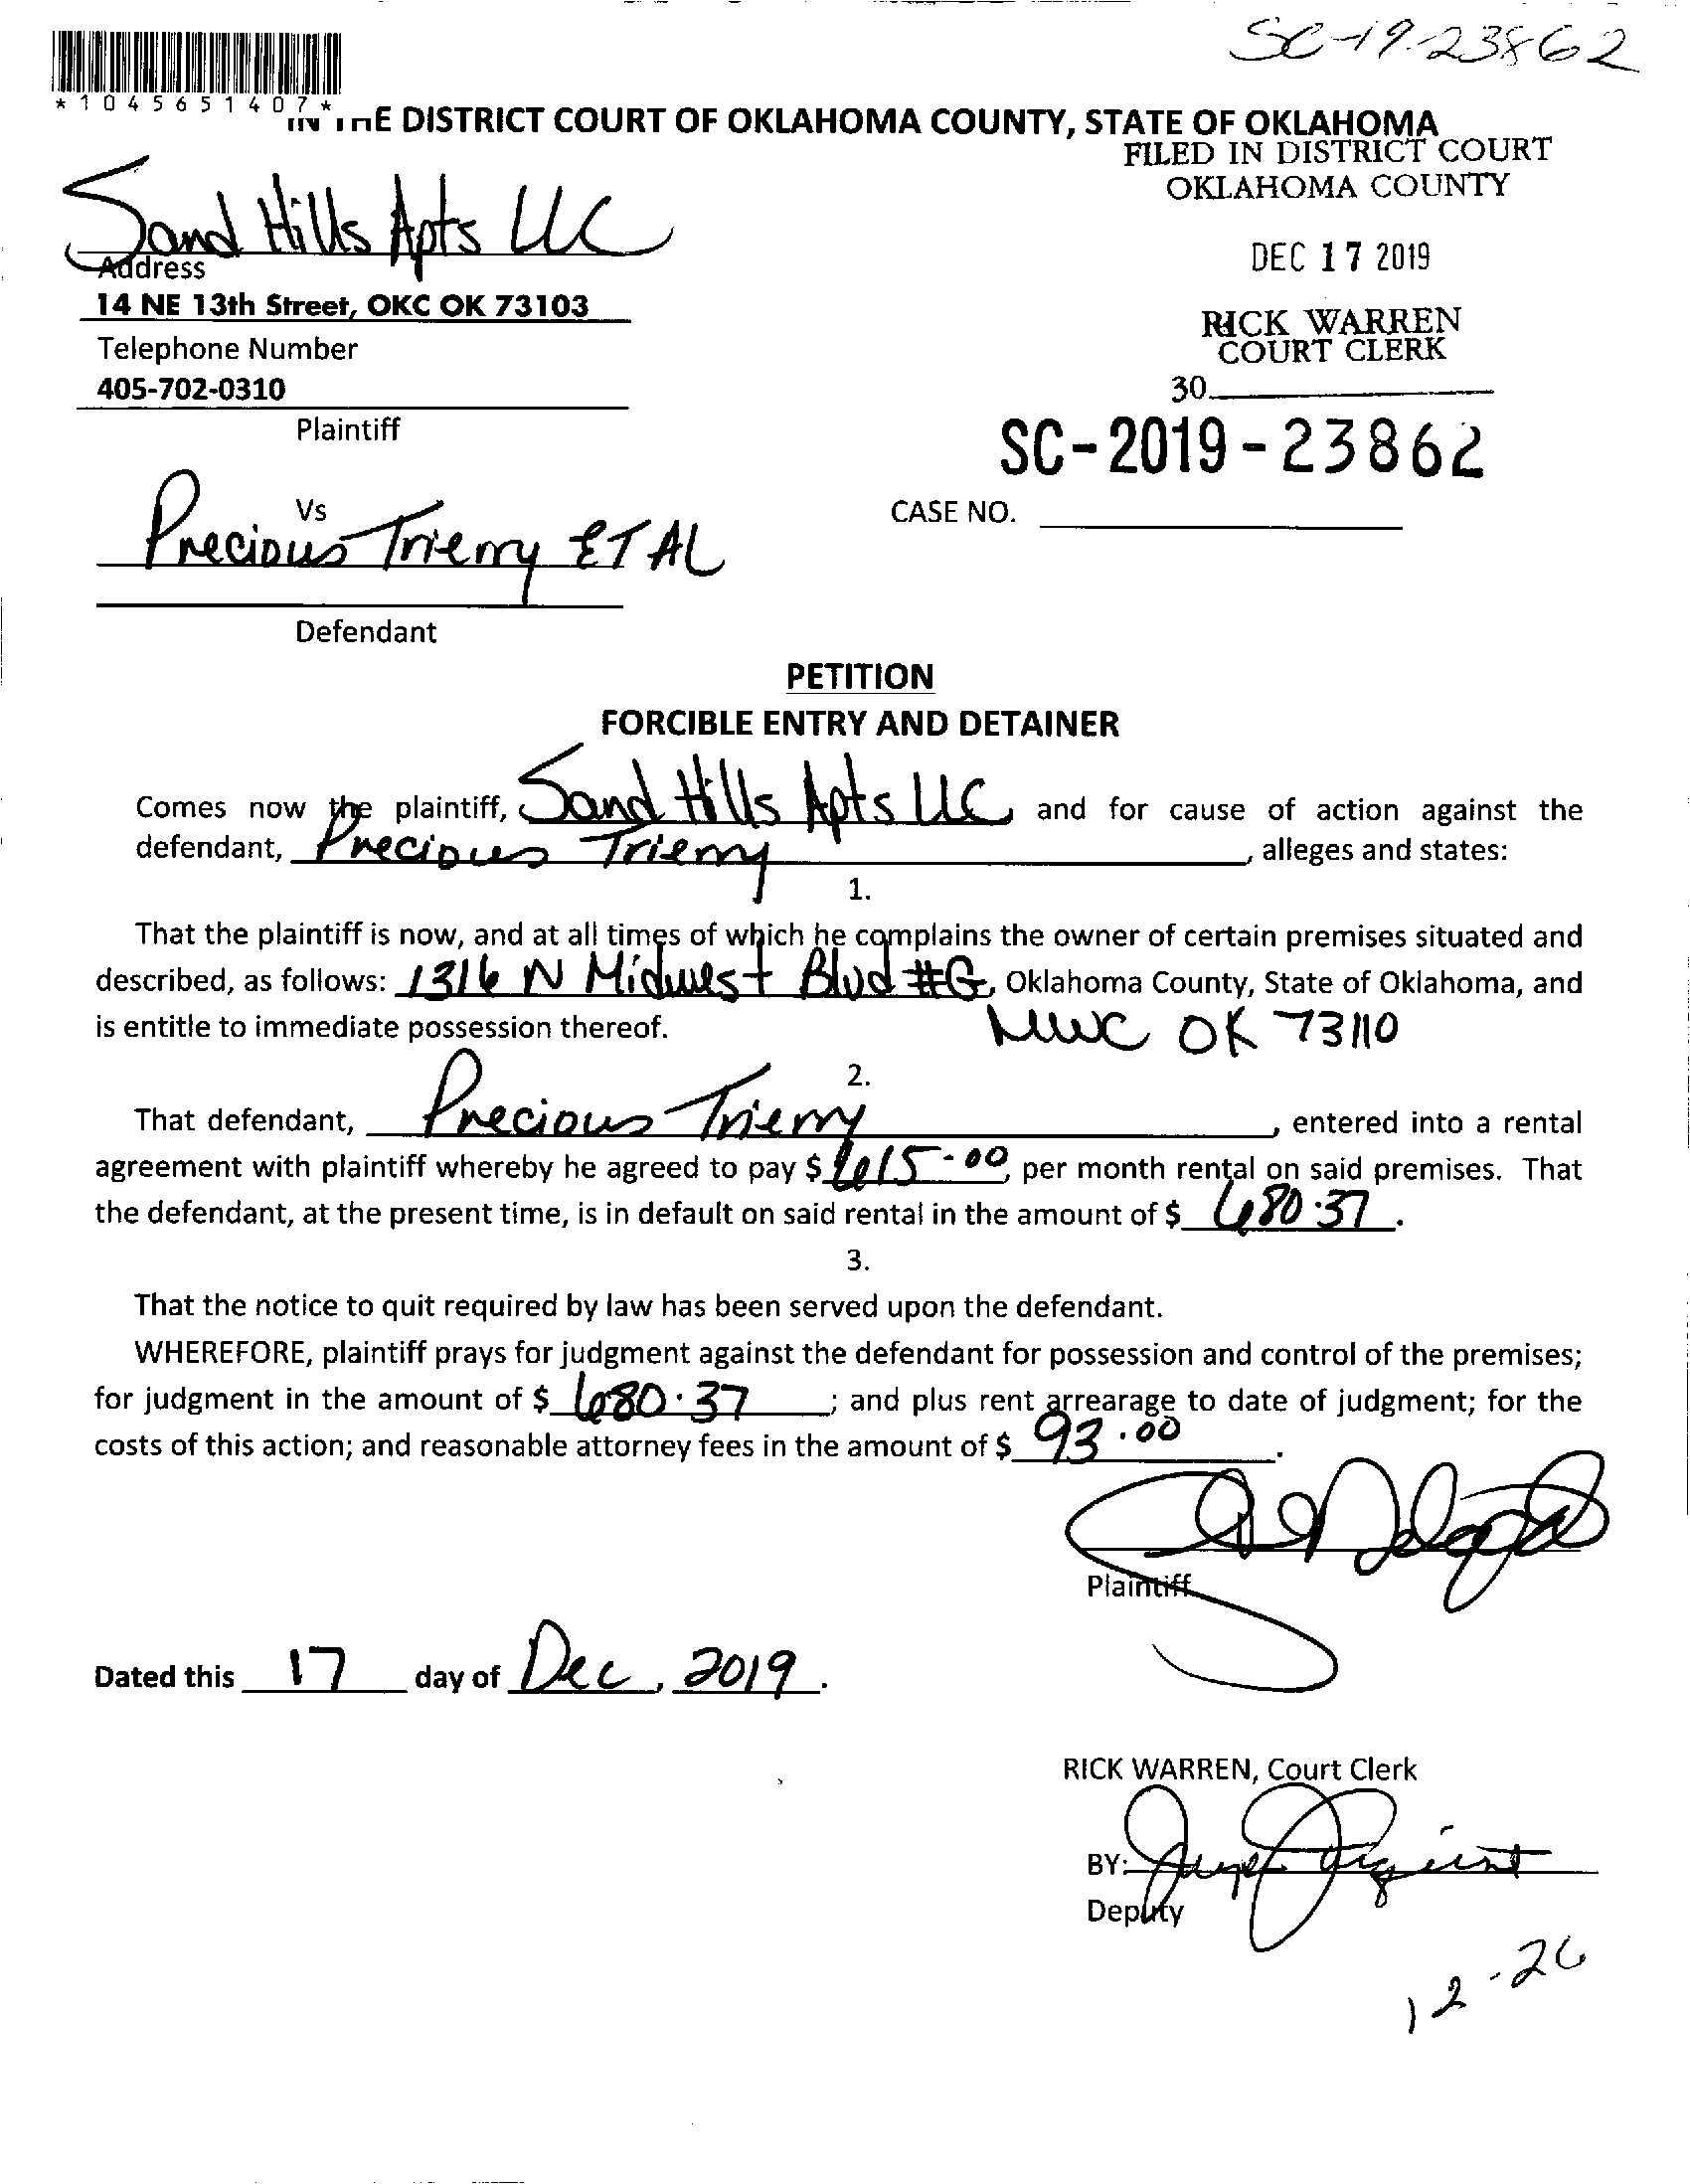 SC-19-23862
*1045651407*
IN THE DISTRICT COURT OF OKLAHOMA COUNTY, STATE OF OKLAHOMA
FILED IN DISTRICT COURT
OKLAHOMA COUNTY
Sand Hills Apts LLC
Address
DEC 17 2019
14 NE 13th Street, OKC OK 73103
RICK WARREN
COURT CLERK
Telephone Number
405-702-0310
30
Plaintiff
SC-2019-23862
Vs
CASE NO.
Precious Trierry ET AL
Defendant
PETITION
FORCIBLE ENTRY AND DETAINER
Comes now the plaintiff, Sand Hills Apts LLC, and for cause of action against the
defendant, Precious Trierry, alleges and states:
1.
That the plaintiff is now, and at all times of which he complains the owner of certain premises situated and
described, as follows: 1316 N Midwest Blvd #G, Oklahoma County, State of Oklahoma, and
is entitle to immediate possession thereof. MWC OK 73110
2.
That defendant, Precious Trierry, entered into a rental
agreement with plaintiff whereby he agreed to pay $ 615.00, per month rental on said premises. That
the defendant, at the present time, is in default on said rental in the amount of $ 680.37.
3.
That the notice to quit required by law has been served upon the defendant.
WHEREFORE, plaintiff prays for judgment against the defendant for possession and control of the premises;
for judgment in the amount of $ 680.37; and plus rent arrearage to date of judgment; for the
costs of this action; and reasonable attorney fees in the amount of $ 93.00.
Plaintiff
Dated this 17 day of Dec, 2019.
RICK WARREN, Court Clerk
BY:
Deputy
12-26